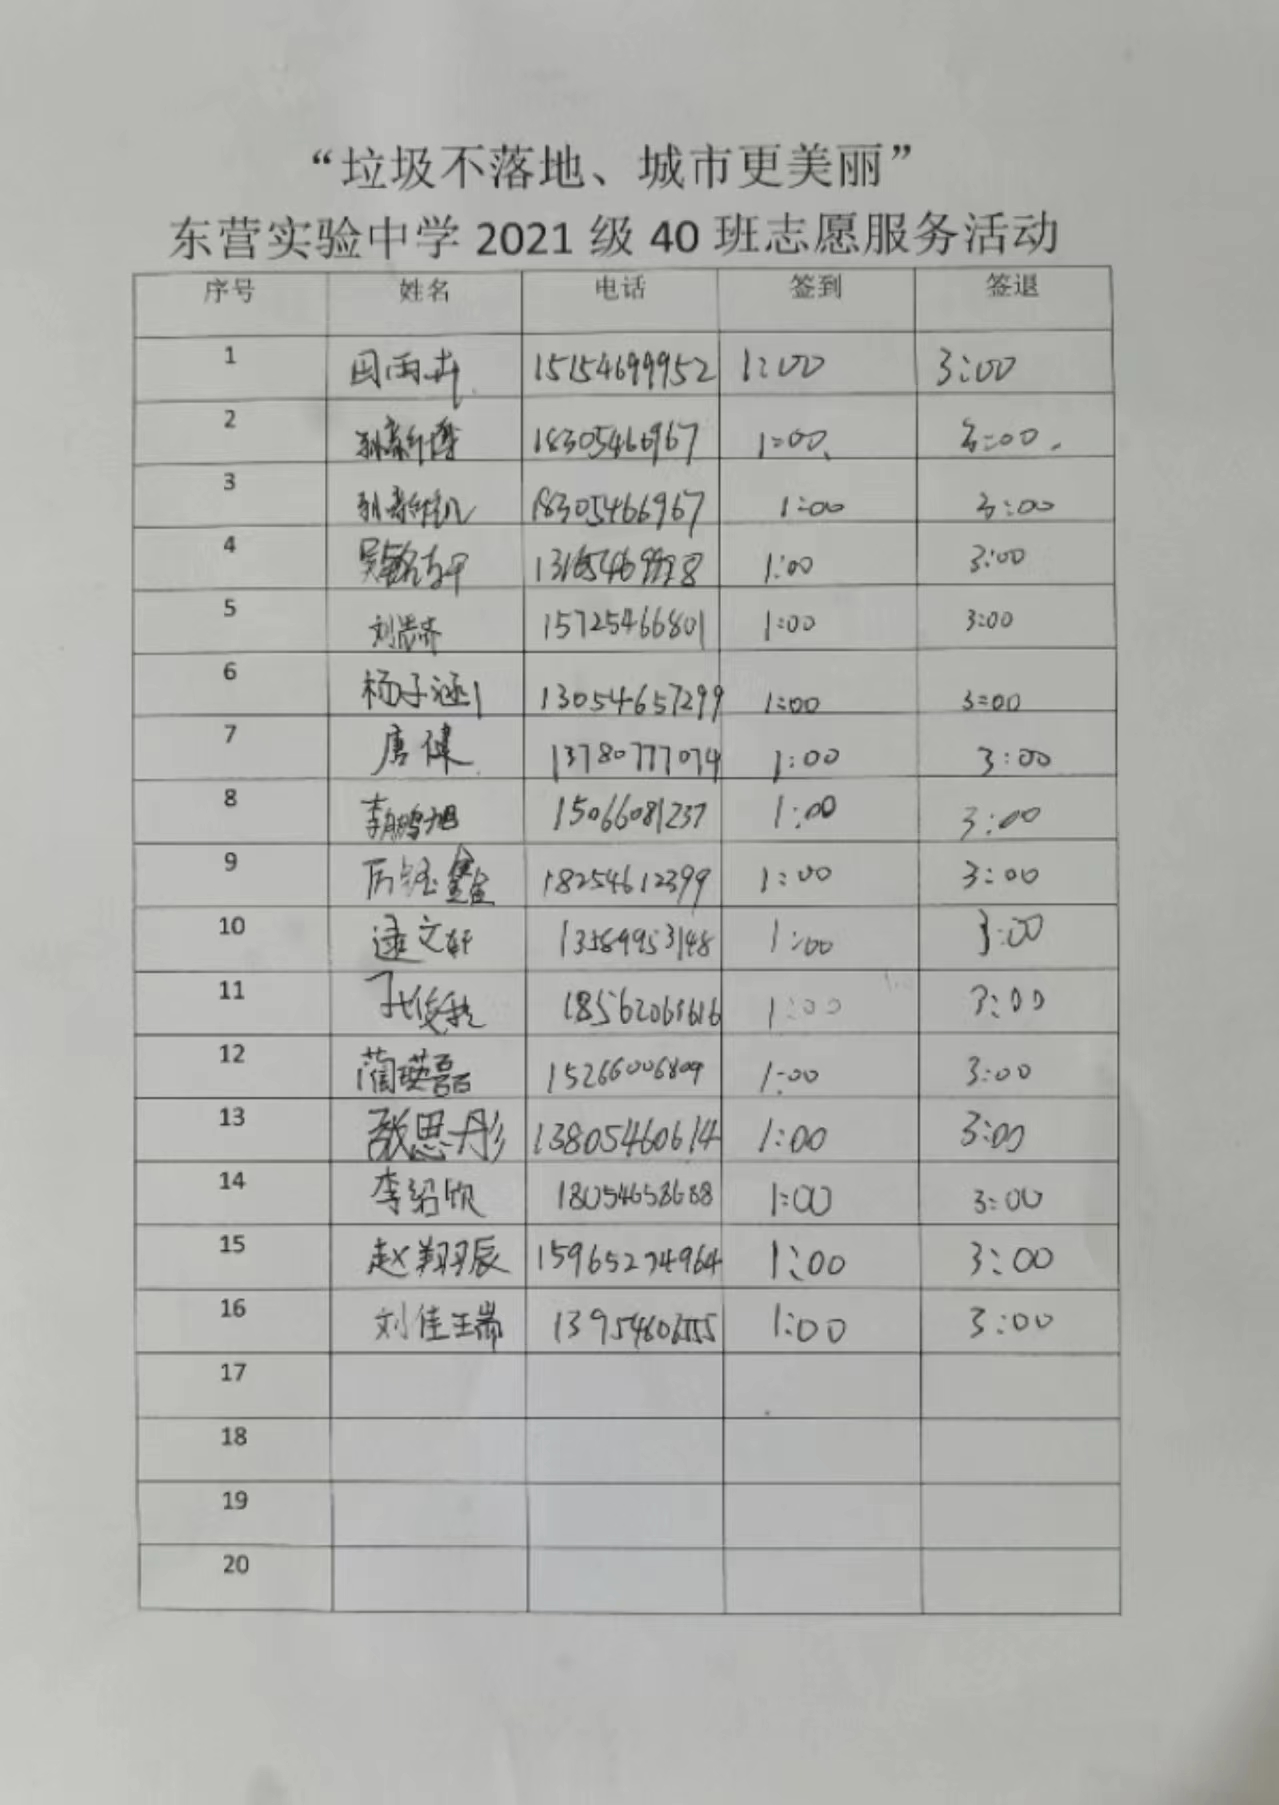 “垃圾不落地、城市更美丽”
东营实验中学 2021 级 40 班志愿服务活动
序号 姓名 电话 签到 签退
1 国雨卉 15154699952 1:00 3:00
2 18305466967 1:00 3:00
3 18305466967 1:00 3:00
4 1:00 3:00
5 15725466801 1:00 3:00
6 杨子涵 13054657299 1:00 3:00
7 唐健 13780777074 1:00 3:00
8 李鹏旭 15066081237 1:00 3:00
9 厉钰鑫 18254612399 1:00 3:00
10 逯文轩 13589953148 1:00 3:00
11 1:00 3:00
12 蔺瑛磊 15266006809 1:00 3:00
13 张思彤 13805460614 1:00 3:00
14 李绍欣 18054658688 1:00 3:00
15 赵翔辰 15965274964 1:00 3:00
16 刘佳瑞 13954606555 1:00 3:00
17
18
19
20